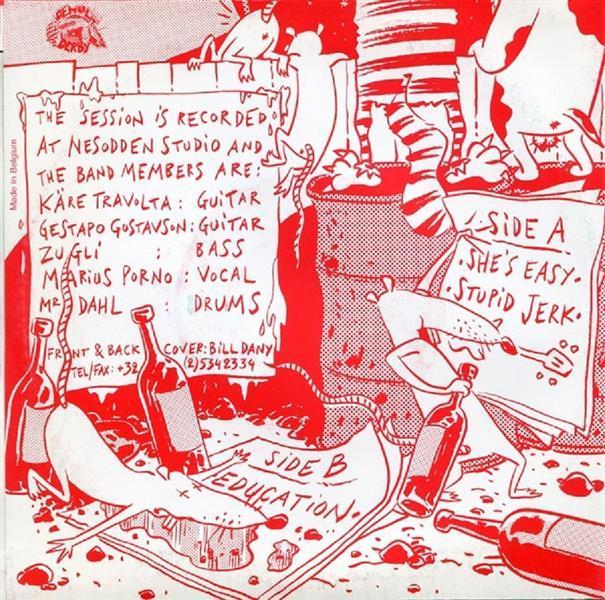 DEMOLI
DERBY
Made in Belgium
THE SESSION IS RECORDED
AT NESODDEN STUDIO AND
THE BAND MEMBERS ARE:
KÄRE TRAVOLTA : GUITAR
GESTAPO GUSTAVSON : GUITAR
ZUGLI : BASS
MARIUS PORNO : VOCAL
MR DAHL : DRUMS
FRONT & BACK COVER: BILL DANY
TEL/FAX: +32 (2)5342334
SIDE A
• SHE'S EASY •
• STUPID JERK •
SIDE B
EDUCATION.